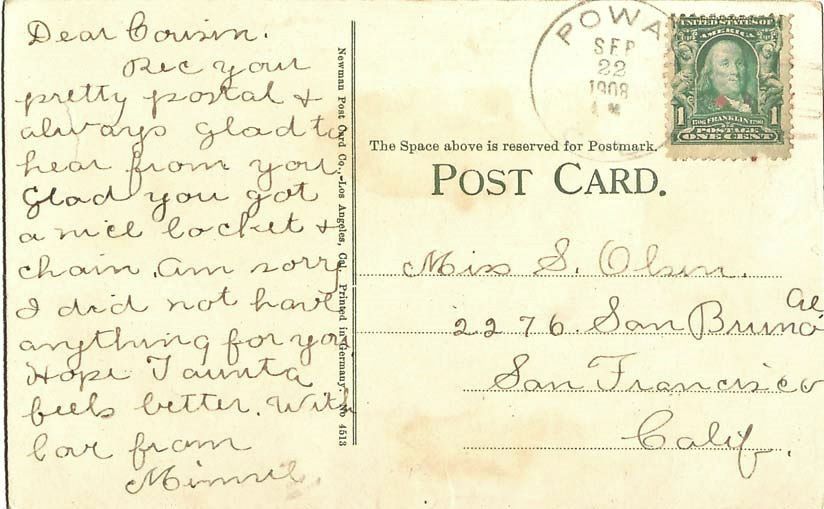 Dear Cousin.
Rec your
pretty postal &
always glad to
hear from you.
Glad you got
a nice locket &
chain. am sorry
I did not have
anything for you
Hope Taunta
feels better. With
love from
Minnie.
Newman Post Card Co.,-Los Angeles, Cal. Printed in Germany. No 4513
POWA
SEP
22
1908
M
UNITED STATES OF
AMERICA
1 FRANKLIN 1
POSTAGE
ONE CENT
The Space above is reserved for Postmark.
POST CARD.
Miss S. Olsen.
2276. San Bruno
San Francisco
Calif.